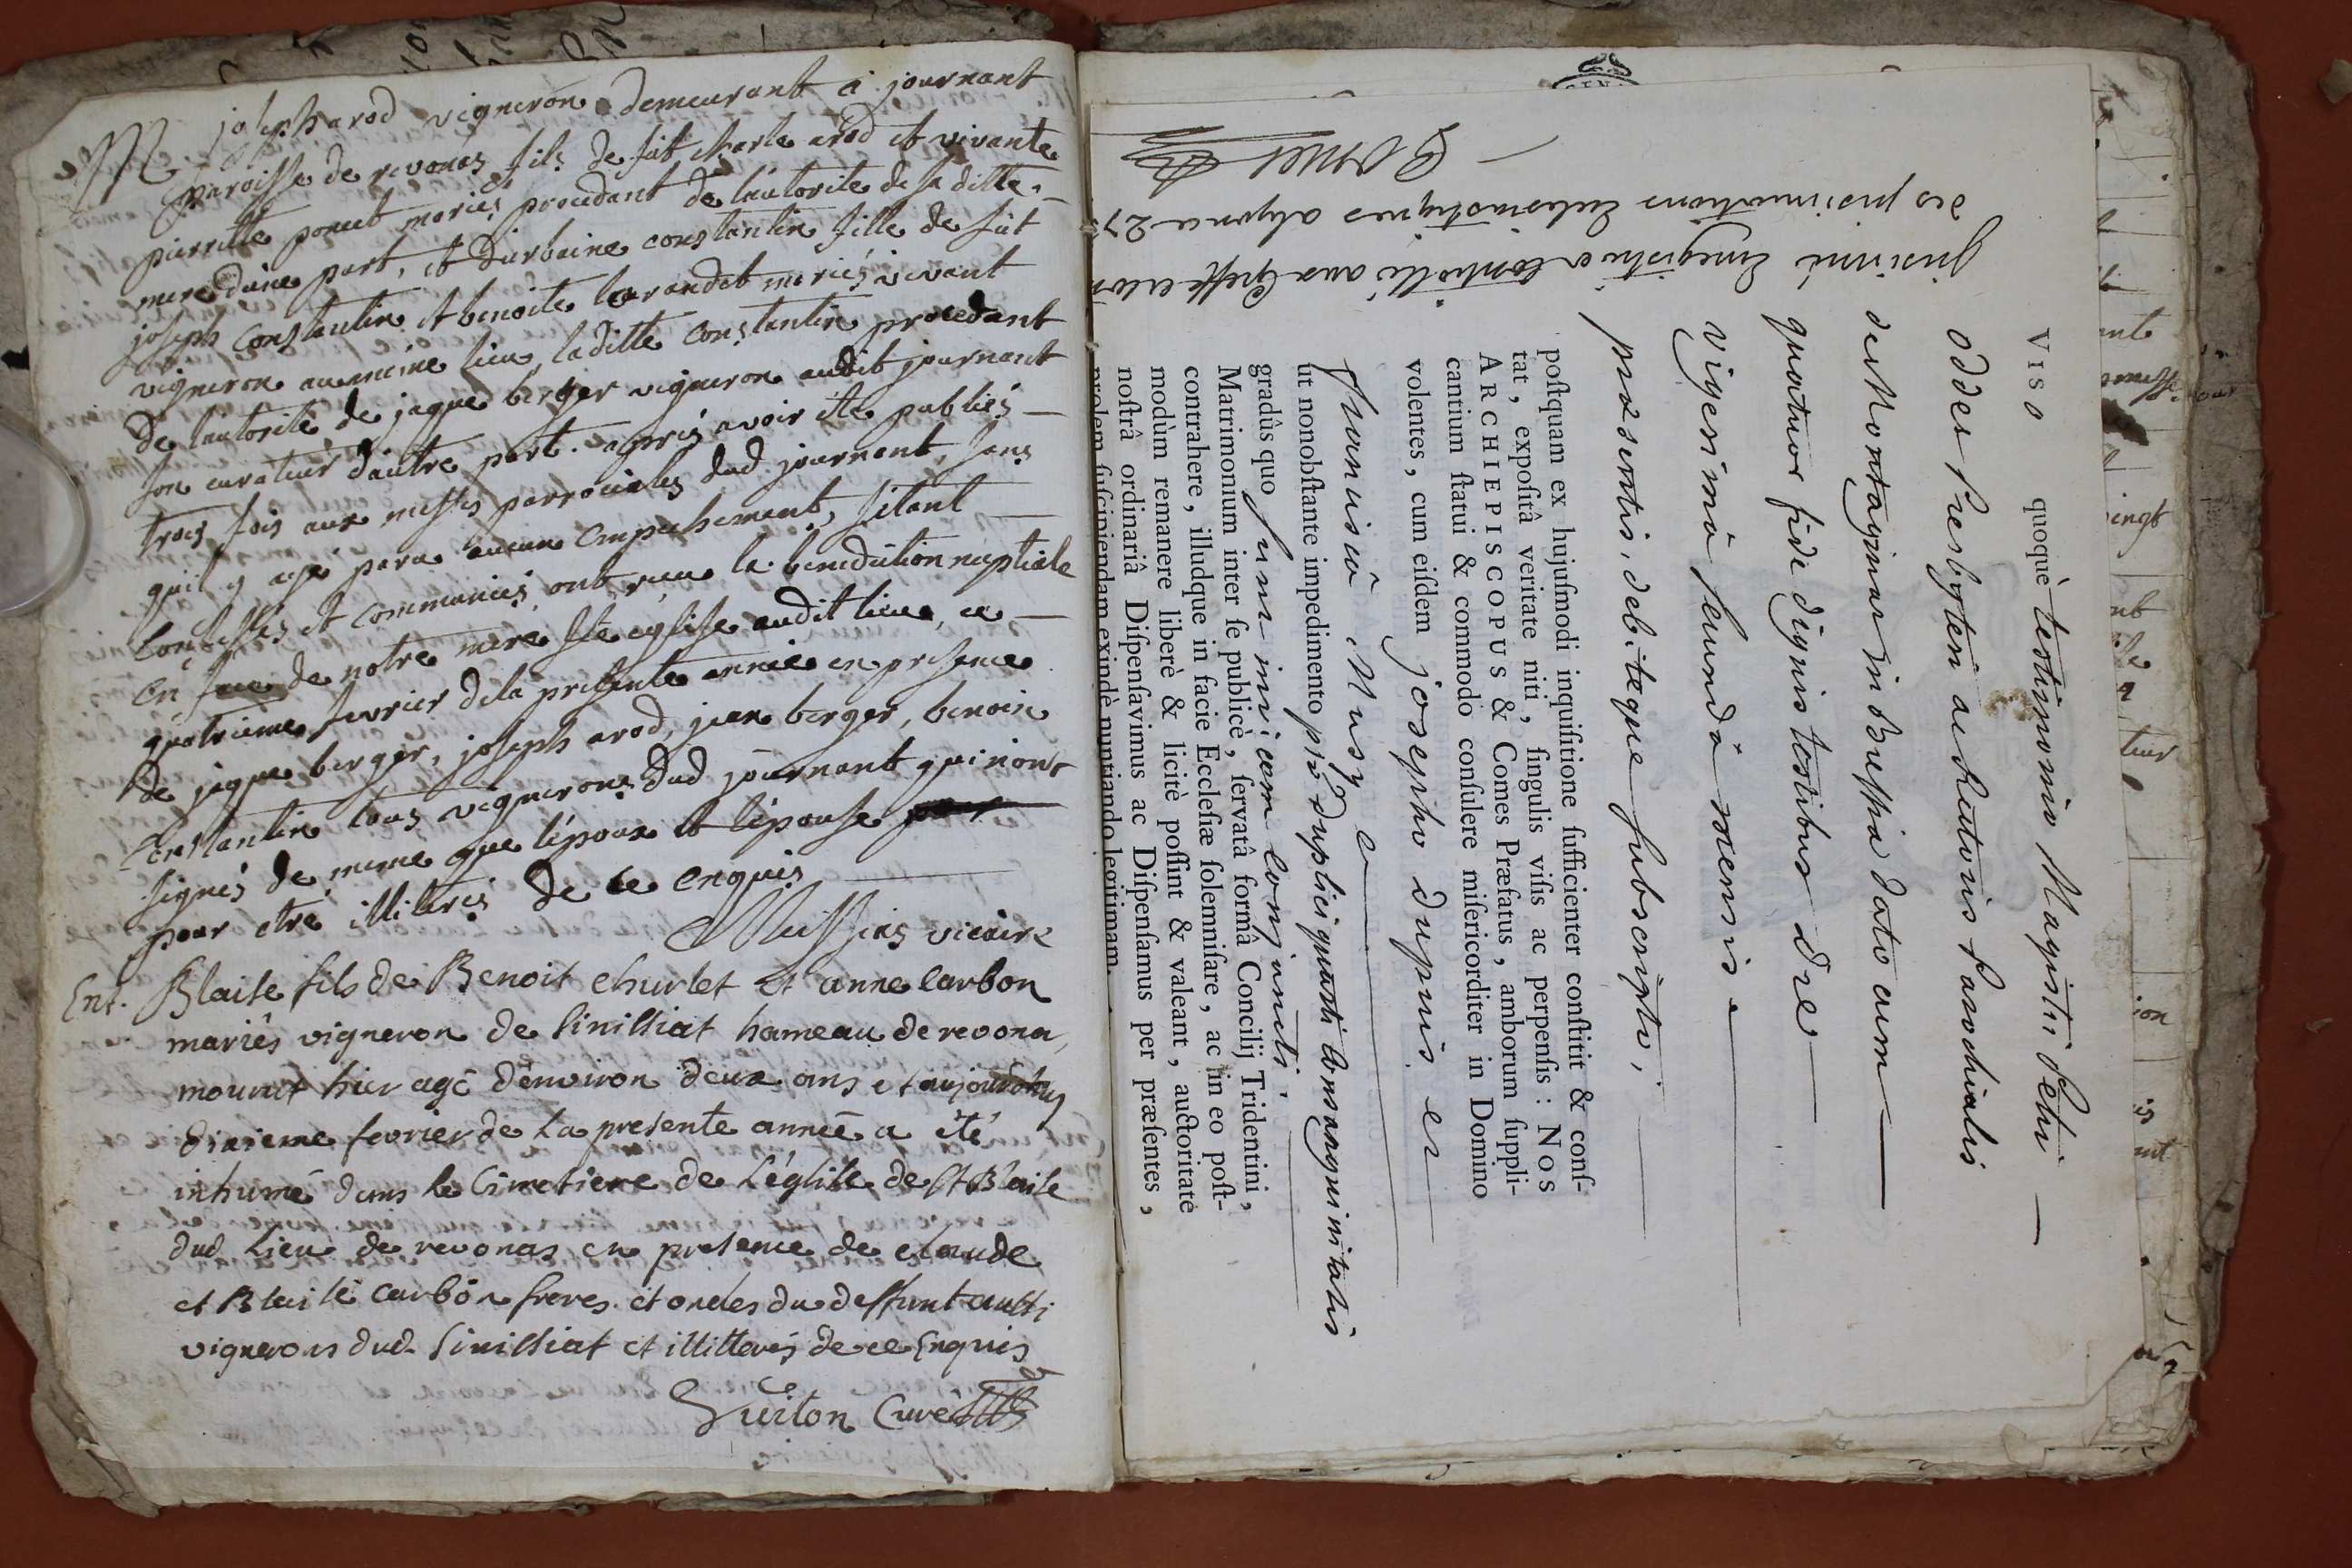 M joseph arod vigneron demeurant a journant
paroisse de revonas fils de fut charle arod et vivante
pierrette poncet mariés procedant de l'autorite de sa ditte
mere d'une part, et d'urbaine constantin fille de fut
joseph constantin et benoite mariés vivant
vigneron au meme lieu, laditte constantin procedant
de lautorite de jaque berger vigneron audit journant
son curateur d'autre part. après avoir ete publiés
trois fois aux messes parrociales dud journant, sans
quil y aye paru aucun empechement, s'etant
confessés et communiés ont reçu la benediction nuptiale
en face de notre mere ste eglise audit lieu, ce
quatrieme fevrier dela presente année en presence
de jaque berger, joseph arod, jean berger, benoin
constantin tous vignerons dud journant qui n'ont
signés de meme que l'epoux et l'epouse
pour etre illiterés de ce enquis
vicaire
Ent. Blaise fils de Benoit churlet et anne carbon
mariés vigneron de Sinissiat hameau de revona
mourut hier agé d'environ deux ans et aujourdhuy
dixieme fevrier de la presente année a été
inhumé dans le Cimetiere de L'église de St Blaise
dud Lieu de revonas en presence de claude
et Blaise carbon freres et oncles du deffunt aussi
vignerons dud. Sinissiat et illitterés de ce Enquis
Guiton Curé
VISO quoquè testimonio Magistri Petri
odder Presbyteri ac Rectoris Parochialis
de Montagnar in Bressia dato cum
quatuor fide dignis testibus die
vigesimâ secundâ mensis
præsentis, debiteque subscripto,
poſtquam ex hujuſmodi inquiſitione ſufficienter conſtitit & conſ-
tat, expoſitâ veritate niti, ſingulis viſis ac perpenſis: NOS
ARCHIEPISCOPUS & Comes Præfatus, amborum ſuppli-
cantium ſtatui & commodo conſulere miſericorditer in Domino
volentes, cum eiſdem josepho dupuis et
franciscâ Musy
ut nonobſtante impedimento pto duplicis quarti consanguinitatis
gradûs quo sunt invicem conjuncti
Matrimonium inter ſe publicè, ſervatâ formâ Concilij Tridentini,
contrahere, illudque in facie Eccleſiæ ſolemniſare, ac in eo poſt-
modùm remanere liberè & licitè poſſint & valeant, auctoritate
noſtrâ ordinariâ Diſpenſavimus ac Diſpenſamus per præſentes,
prolem ſuſcipiendam exindè nuntiando legitimam.
insinué Enregistré et Controllé aux Greffe
des insinuations Eclesiastiques